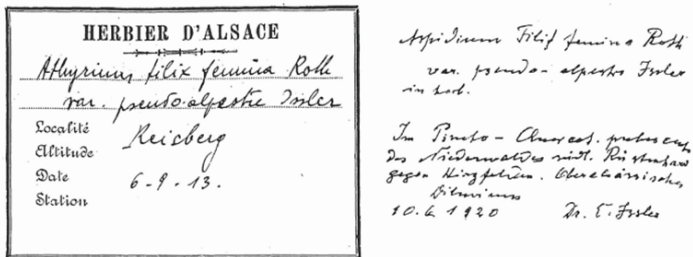 HERBIER D'ALSACE
Athyrium filix femina Roth
var. pseudo-alpestre Issler
Localité Reisberg
Altitude
Date 6-9.13.
Station
Aspidium Filix femina Roth
var. pseudo-alpestre Issler
in herb.
Im Pineto-
des Niederwaldes südl.
gegen Hirzfelden. Oberelsässisches
Diluvium
10.6 1920 Dr. E. Issler